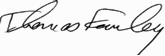 Thomas Farley